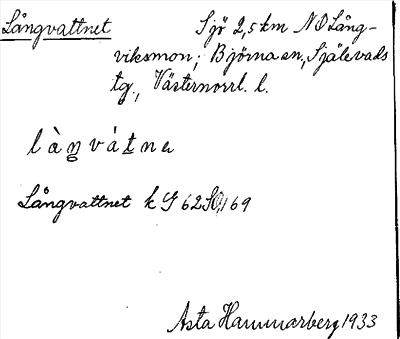 Långvattnet Sjö 2,5 km NO Lång-
viksmon; Björna sn, Själevads
tg., Västernorrl. l.
l à n̥ v á t n e
Långvattnet k G 6250,169
Asta Hammarberg 1933